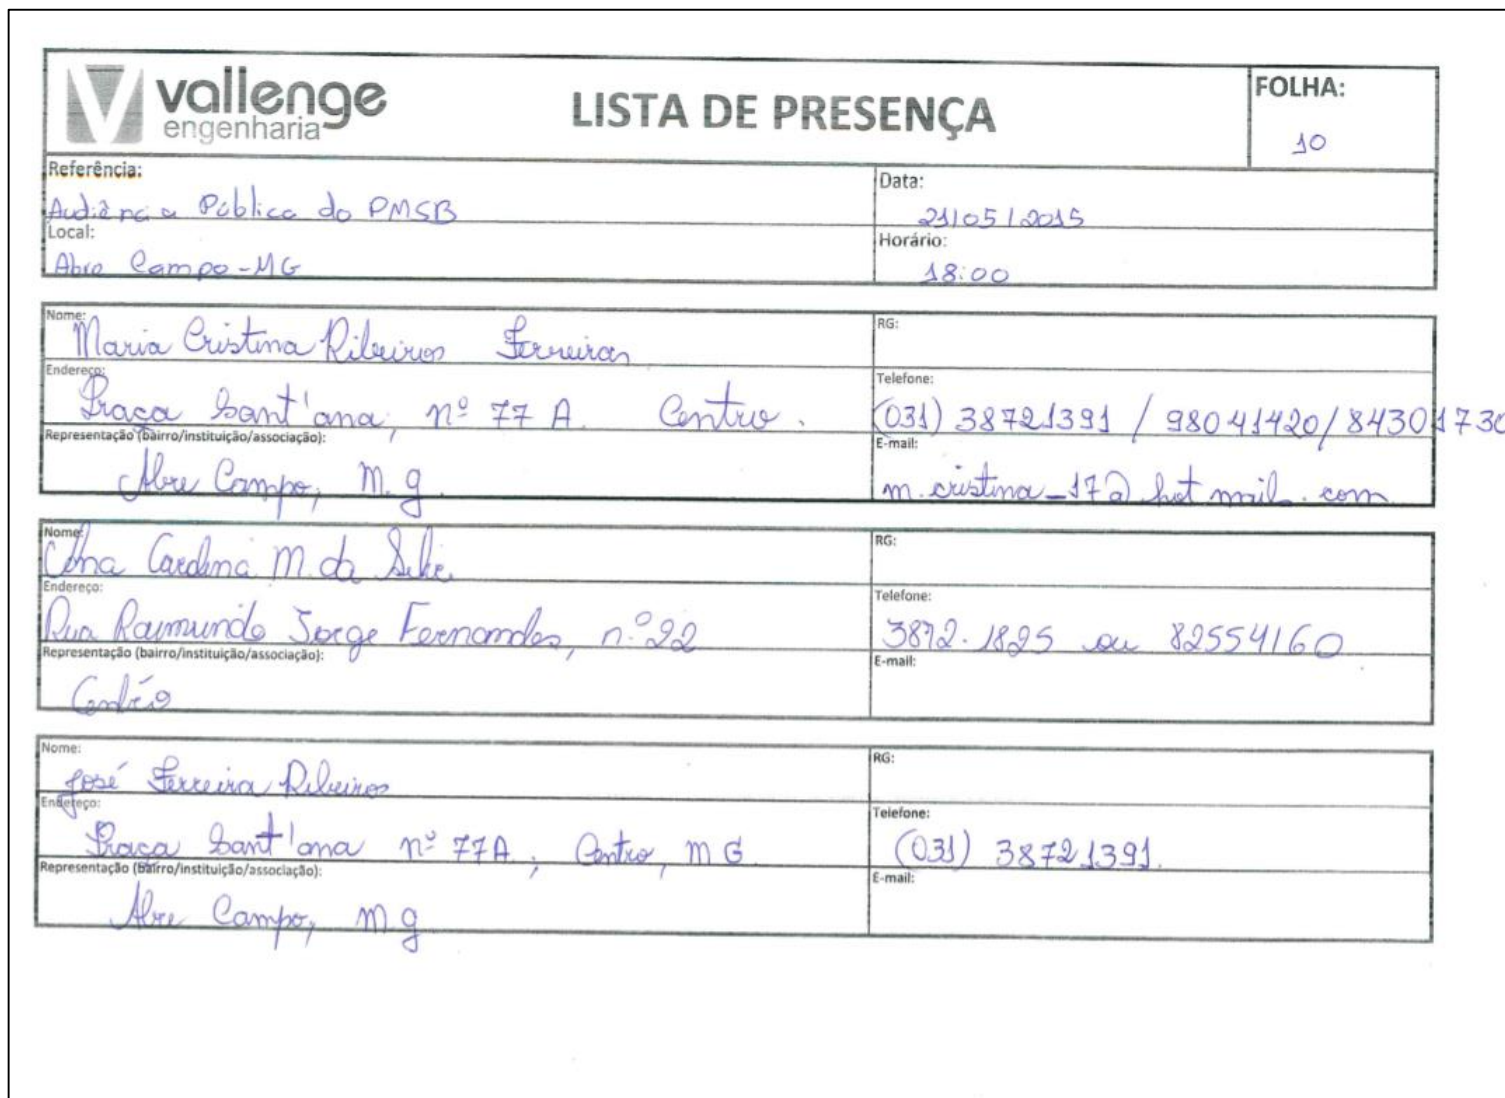 vallenge
engenharia
LISTA DE PRESENÇA
FOLHA:
10
Referência:
Audiência Pública do PMSB
Data:
21/05/2015
Local:
Abre Campo-MG
Horário:
18:00
Nome:
Maria Cristina Ribeiros Ferreira
RG:
Endereço:
Praça Sant'ana, nº 77 A. Centro.
Telefone:
(031) 38721391 / 98041420/84301730
Representação (bairro/instituição/associação):
Abre Campo, M.g.
E-mail:
m.cristina_17@hotmail.com
Nome:
Ana Carolina M. da Silva
RG:
Endereço:
Rua Raimundo Jorge Fernandes, n.º 22
Telefone:
3872-1825 ou 82554160
Representação (bairro/instituição/associação):
Centro
E-mail:
Nome:
José Ferreira Ribeiros
RG:
Endereço:
Praça Sant'ana nº 77A, Centro, MG
Telefone:
(031) 38721391.
Representação (bairro/instituição/associação):
Abre Campo, m.g
E-mail: